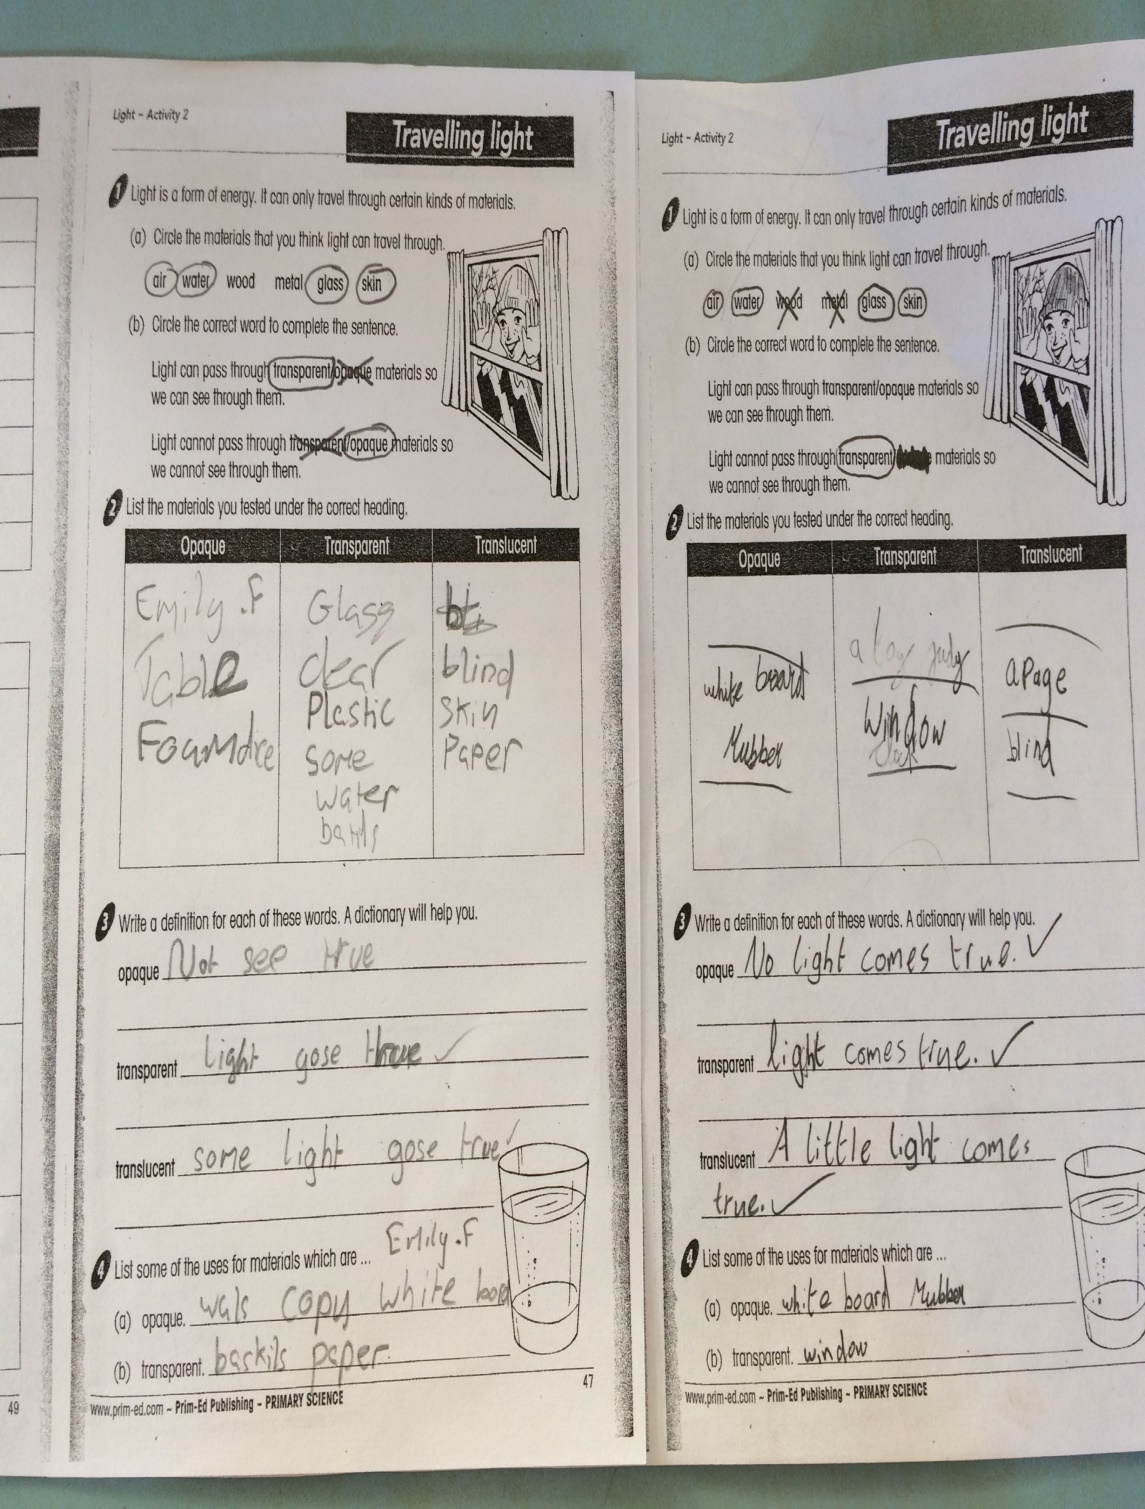 Light ~ Activity 2
Travelling light
1 Light is a form of energy. It can only travel through certain kinds of materials.
(a) Circle the materials that you think light can travel through.
air water wood metal glass skin
(b) Circle the correct word to complete the sentence.
Light can pass through transparent/opaque materials so
we can see through them.
Light cannot pass through transparent/opaque materials so
we cannot see through them.
2 List the materials you tested under the correct heading.
Opaque Transparent Translucent
Emily .F Glass
Table clear blind
Foamdice Plastic Skin
some Paper
water
3 Write a definition for each of these words. A dictionary will help you.
opaque Not see true
transparent light gose true
translucent some light gose true
Emily.F
4 List some of the uses for materials which are ...
(a) opaque. wals copy white bord
(b) transparent. paper
www.prim-ed.com ~ Prim-Ed Publishing ~ PRIMARY SCIENCE
47
49
Light ~ Activity 2
Travelling light
1 Light is a form of energy. It can only travel through certain kinds of materials.
(a) Circle the materials that you think light can travel through.
air water wood metal glass skin
(b) Circle the correct word to complete the sentence.
Light can pass through transparent/opaque materials so
we can see through them.
Light cannot pass through transparent/ materials so
we cannot see through them.
2 List the materials you tested under the correct heading.
Opaque Transparent Translucent
white board a aPage
Rubber window blind
3 Write a definition for each of these words. A dictionary will help you.
opaque No light comes true.
transparent light comes true.
translucent A little light comes
true.
4 List some of the uses for materials which are ...
(a) opaque. white board Rubber
(b) transparent. window
www.prim-ed.com ~ Prim-Ed Publishing ~ PRIMARY SCIENCE